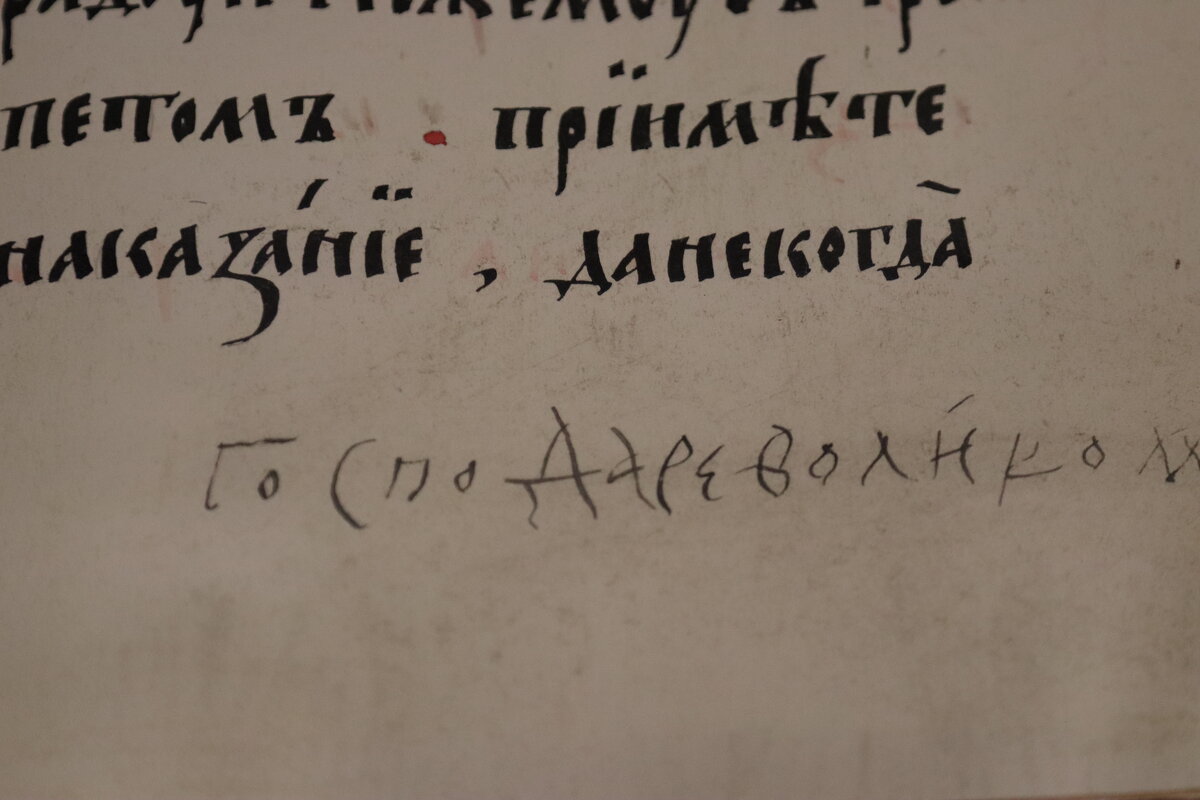 петомъ . прїимѣте
наказа́нїе , данекогда̀
Го С по Дареволи́ко